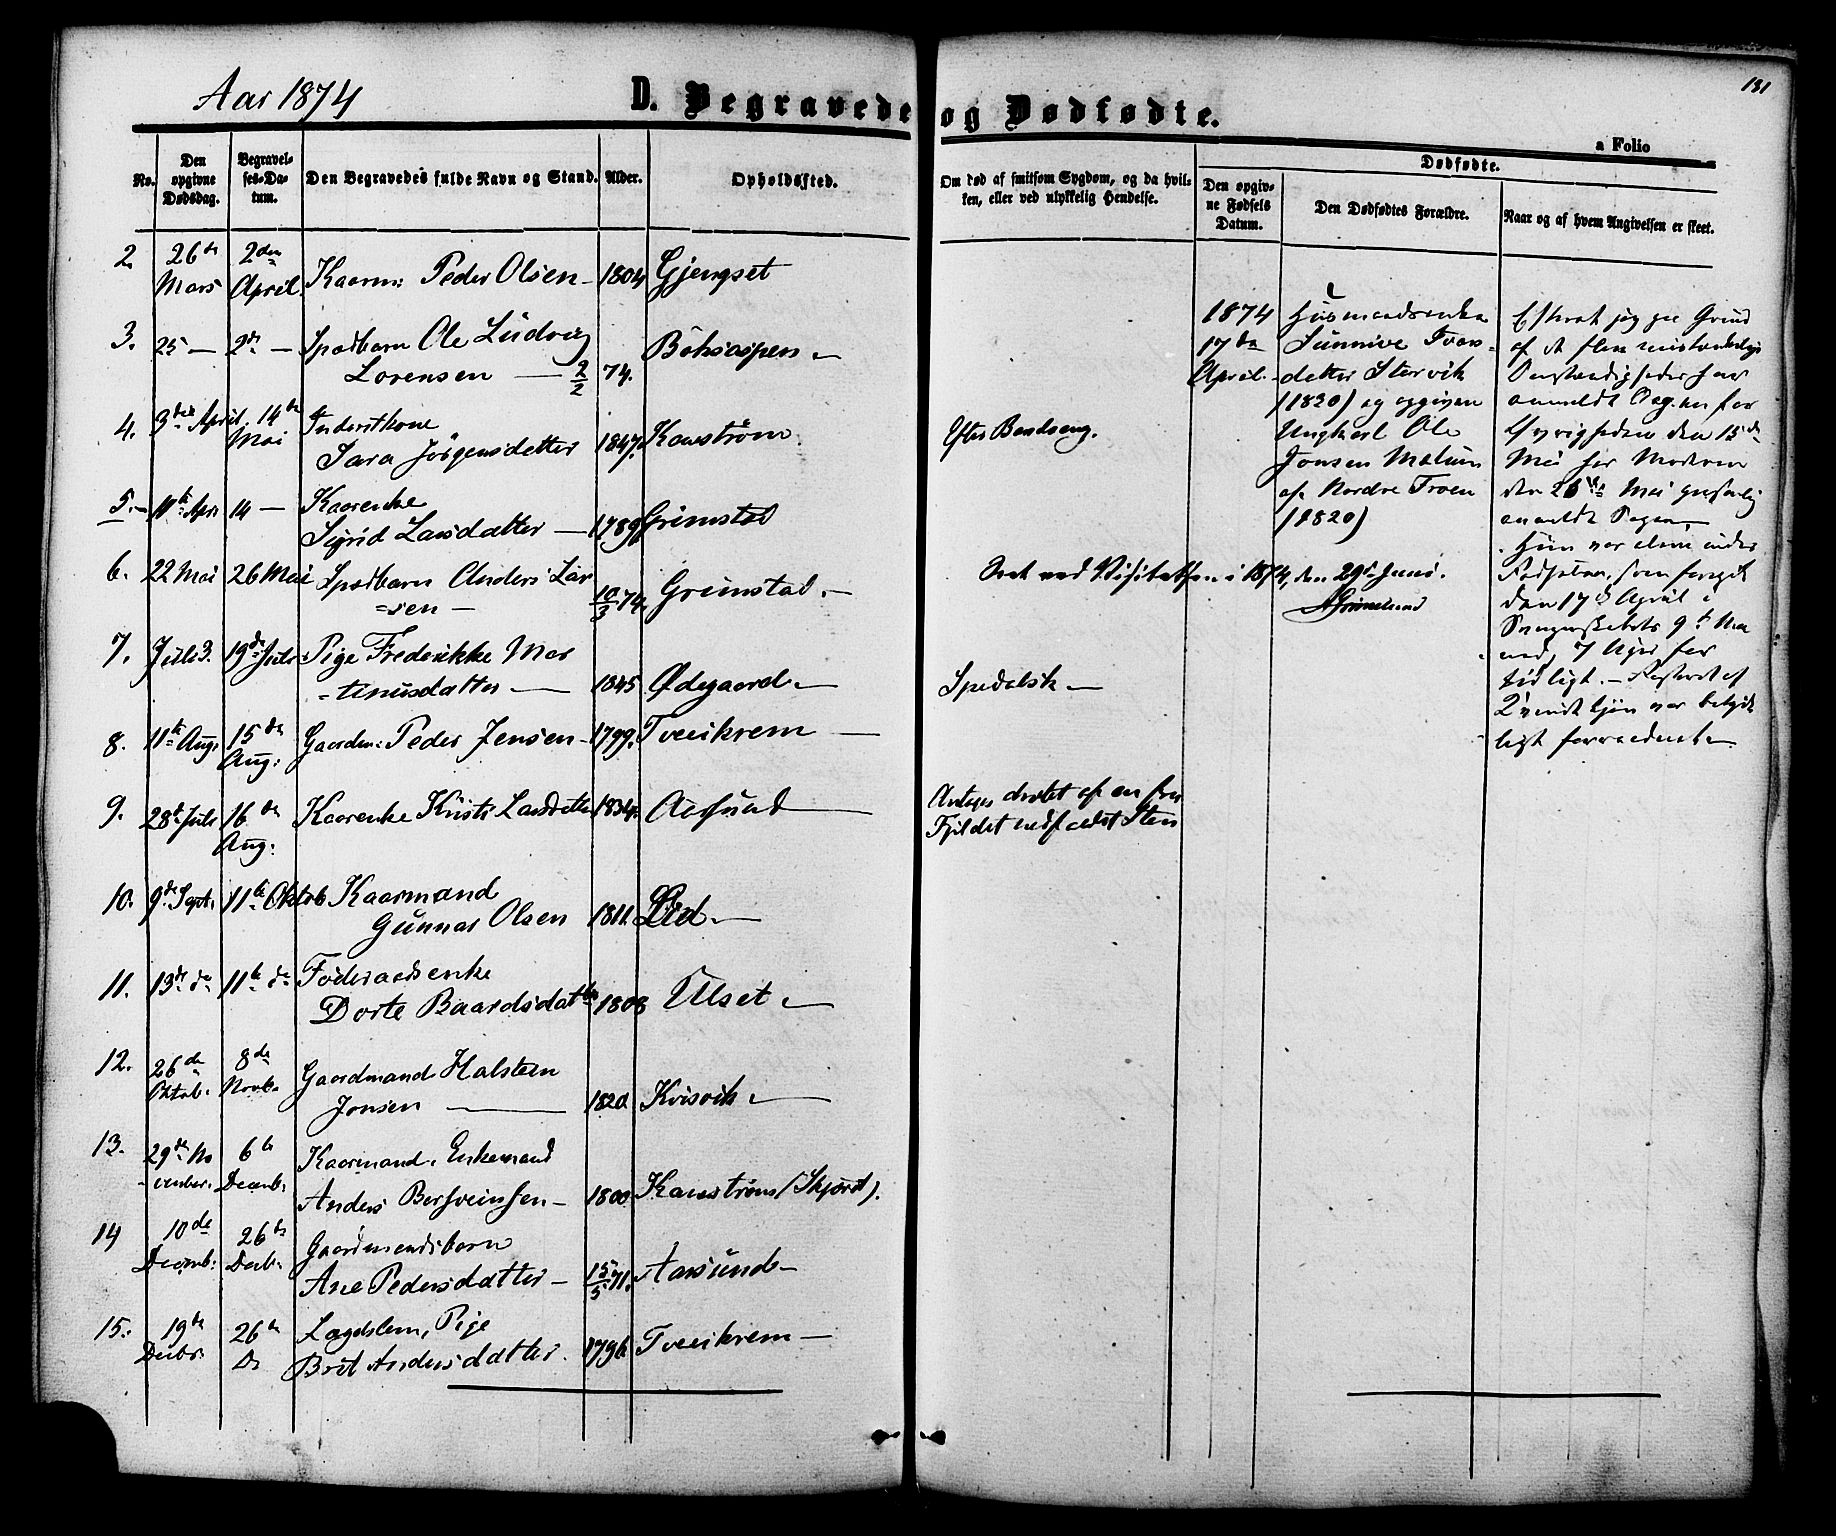 Aar 1874
D. Begravede og Dødfødte.
131
a Folio
No.
Den opgivne Dødsdag.
Begravelses-Datum.
Den Begravedes fulde Navn og Stand.
Alder.
Opholdssted.
Om død af smitsom Sygdom, og da hvilken, eller ved ulykkelig Hendelse.
Dødfødte.
Den opgivne Fødsels Datum.
Den Dødfødtes Forældre.
Naar og af hvem Angivelsen er skeet.
2. 26de Mars 2den April Kaarm: Peder Olsen 1804 Gjengset
3. 25 — 2den — Spædbarn Ole Ludvig
Lorensen — 2/2 74.
4. 3die April. 14de Mai Inderstkone
Sara Jörgensdatter 1847. Kanström. Efter Barnseng.
5. 11te Apr 14 — Kaarenke
Sigrid Larsdatter — 1789 Grimstad
6. 22 Mai 26 Mai Spædbarn Anders Lar
=sen — 10/3 74. Grimstad. —
7. Juli 3. 19de Juli Pige Frederikke Mor
=tinusdatter — 1845 Ødegaard — Spedalsk —
8. 11te Aug. 15de Aug: Gaardm: Peder Jensen 1799. Tveeikrem —
9. 28de Juli 16de Aug: Kaarenke Kristi Larsdatter 1834. Aarsund — Antages dræbt af en fra
Fjeldet nedfaldet Sten
10. 9de Sept. 11te Oktob Kaarmand
Gunnar Olsen 1811. Lid —
11. 13de do 11te do Föderaadsenke
Dorte Baardsdatter 1808 Ulset —
12. 26de Oktob. 8de Novb. Gaardmand Halsten
Jonsen — 1820 Kvisvik —
13. 29de November. 6te Decemb. Kaarmand, Enkemand
Anders Bersveinsen — 1800 Kanström (Skjöret).
14 10de Decemb: 26de Decb. Gaardmandsbarn
Ane Pedersdatter — 15/5 71. Aarsund —
15. 19de Decbr. 26de D. Lægdslem, Pige
Brit Andersdatter. 1796 Tveeikrem —
1874
17de
April.
Husmandsenke
Sunnive Tvars-
datter Storvik
(1820) og opgiven
Ungkarl Ole
Jonsen
af Nordre Troen
(1820)
Efterat jeg paa Grund
af de flere mistænkelige
Omstændigheder har
anmeldt Sagen for
Øvrigheden den 15de
Mai har Moderen
den 26de Mai
anmeldt Sagen.
Hun var alene under
Fødselen, som foregik
den 17de April i
Svangerskabets 9de Maa
ned, 7 Uger for
tidligt. — Fosteret af
Qvindekjøn var betyde
ligt forraadnet —
Seet ved Visitatsen i 1874, den 29de Juni.
AGrimelund